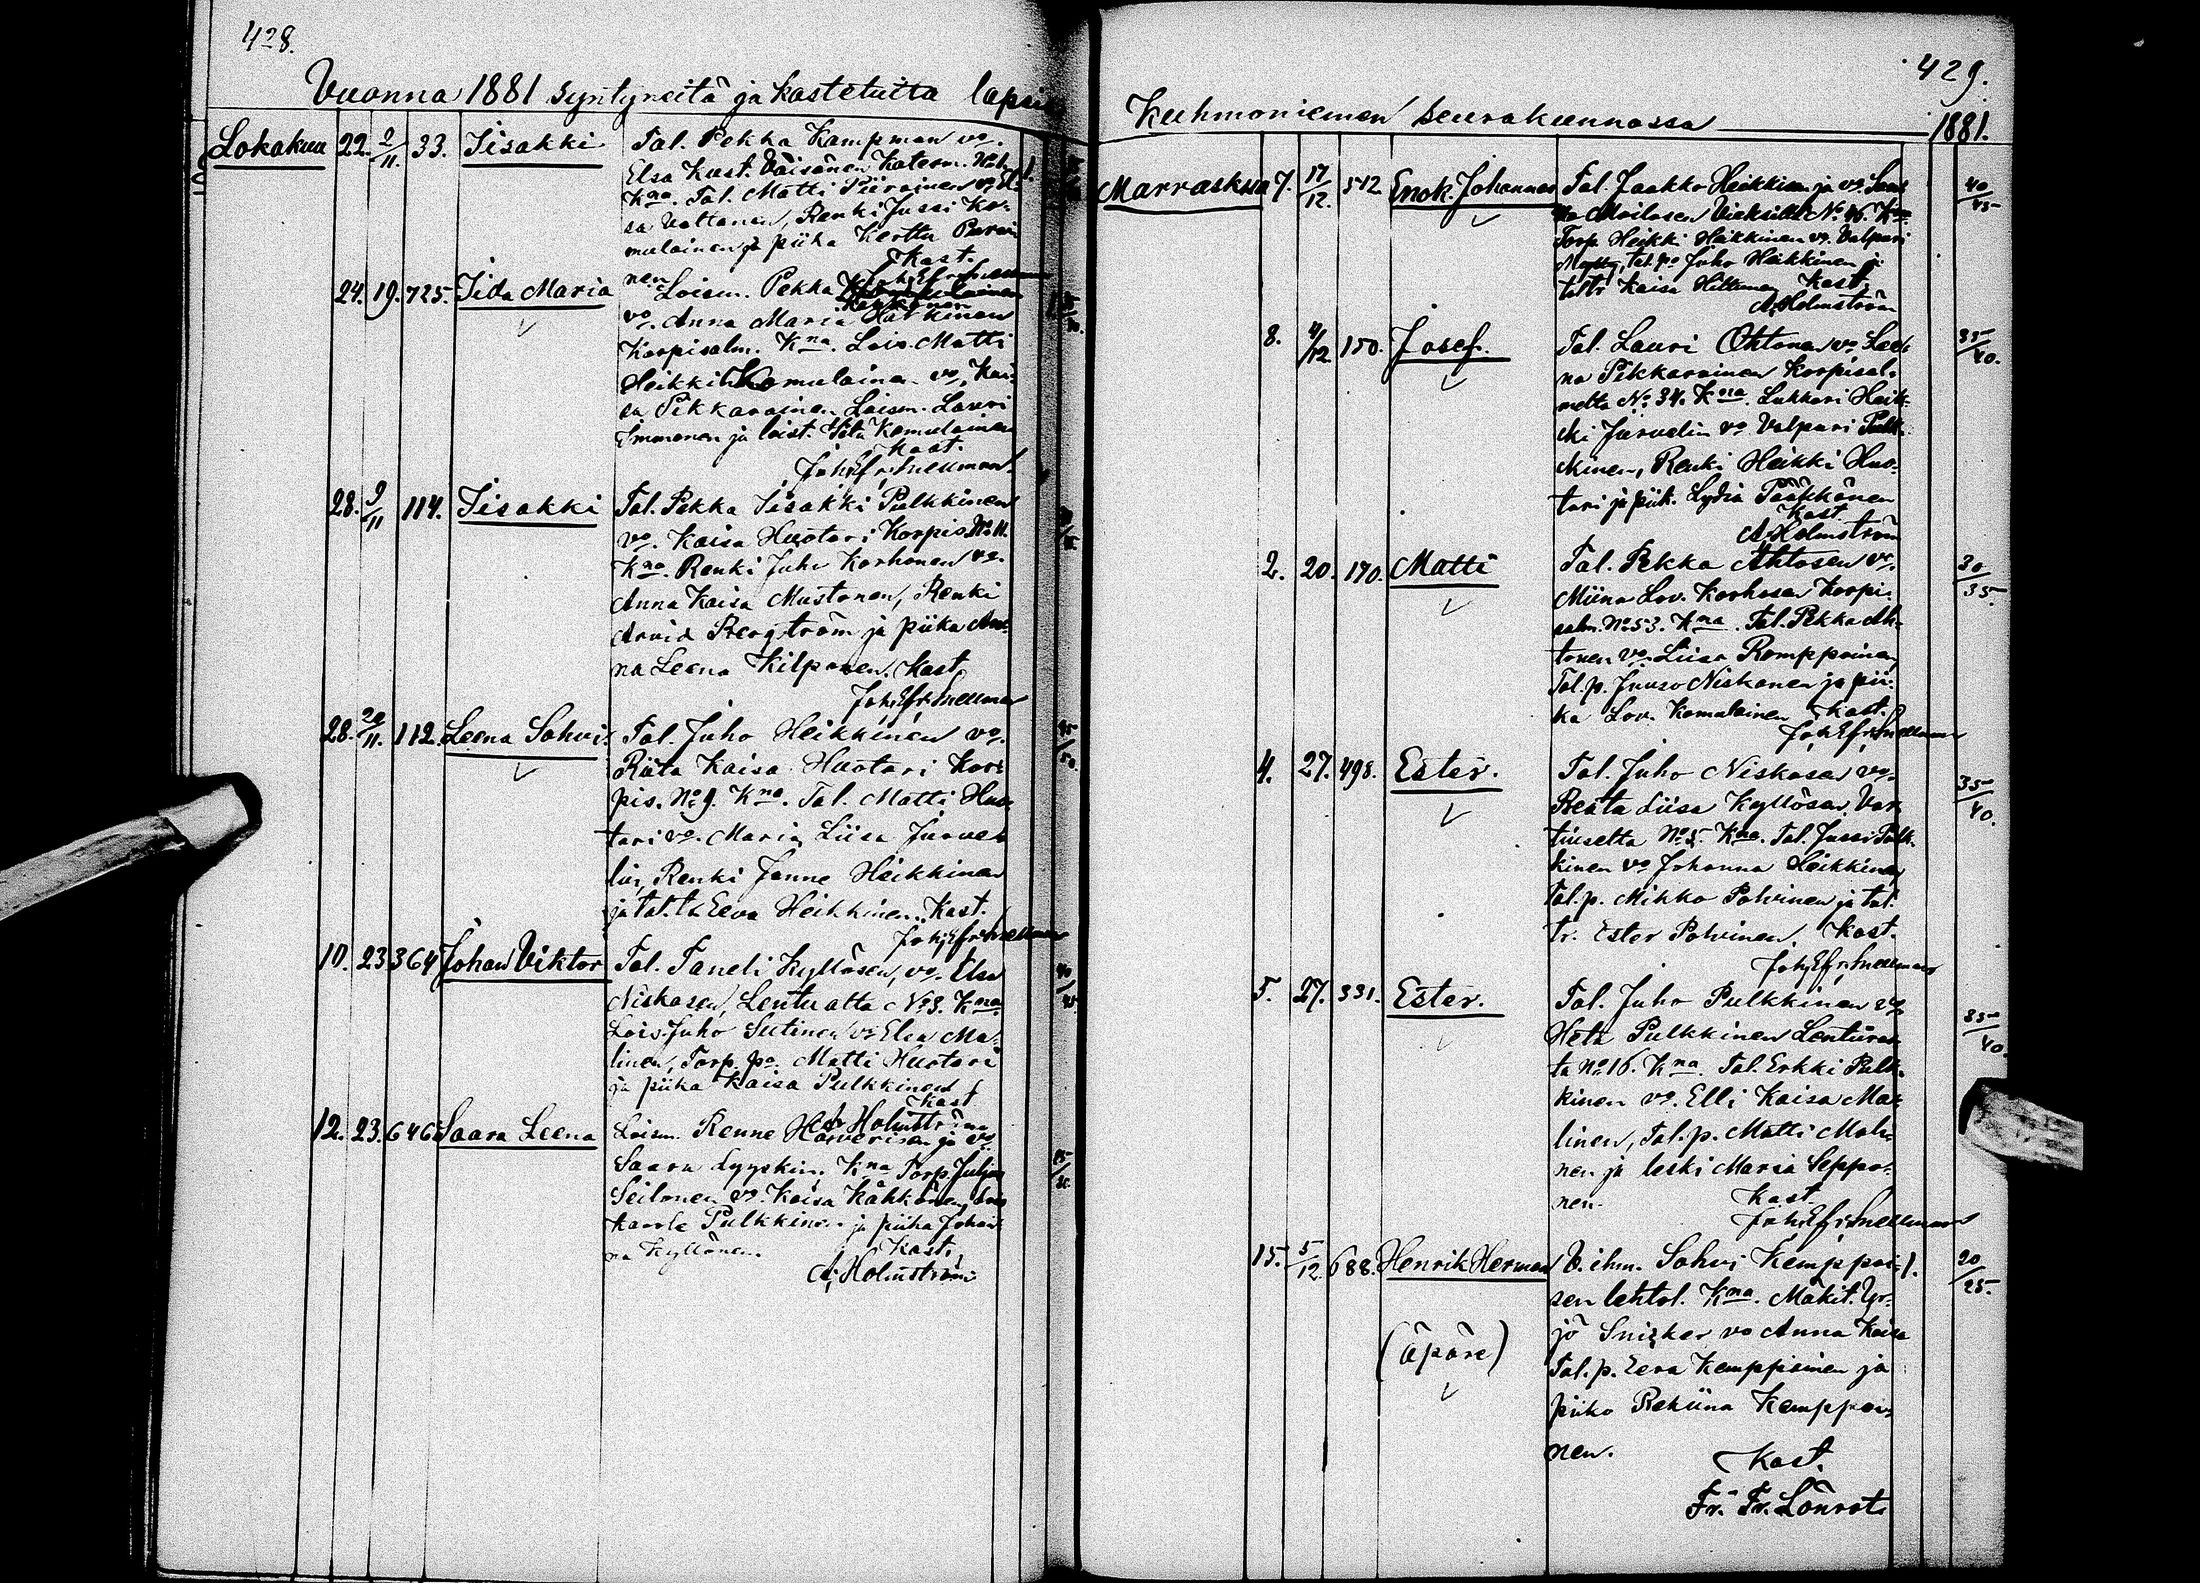 428.
Vuonna 1881 syntyneitä ja kastetuita lapsia
Lokakuu 22. 2/11. 33. Iisakki Tal. Pekka Kampman vo.
Elsa Kust. Väisänen, Katerm. No 1.
Kna. Tal. Matti Piirainen vo El-
sa Valtanen, Renki Jussi Ko-
mulainen ja piika Kerttu Piirai
nen Kast.
Joh. Efr. Snellman
24. 19. 725. Iida Maria Loism. Pekka
vo. Anna Maria Härkönen
Korpisalm. Kna. Lois. Matti
Heikki Komulainen vo. Kai-
sa Pikkarainen Loism. Lauri
Immonen ja loist. Komulainen
Kast.
Joh. Efr. Snellman
28. 9/11 114. Iisakki Tal. Pekka Iisakki Pulkkinen
vo. Kaisa Huotari Korpis. No 11.
Kna. Renki Juho Korhonen vo.
Anna Kaisa Mustonen, Renki
Arvid Bergström ja piika An-
na Leena Kilponen. Kast
Joh. Efr. Snellman
28. 20/11. 112. Leena Sohvi. Tal. Juho Heikkinen vo.
Riita Kaisa Huotari Kor-
pis. No 9. Kna. Tal. Matti Huo-
tari vo. Maria Liisa Järve-
lin, Renki Janne Heikkinen
ja tal. tr Eeva Heikkinen. Kast.
Joh. Efr. Snellman
10. 23 364 Johan Viktor Tal. Taneli Kyllösen, vo. Elsa
Niskasen, Lentuatta No 3. Kna.
Lois. Juho Sutinen vo Elsa Ma-
linen, Torp. po. Matti Huotari
ja piika Kaisa Pulkkinen
Kast
A. Holmström
12. 23. 646 Saara Leena Loism. Renne Harverisen ja vo
Saara Lyyskin; Kna Torp. Juhos
Seilonen vo. Kaisa Kähkönen,
Kaarle Pulkkinen ja piika Johan-
na Kyllönen. Kast.
A. Holmström
429.
Kuhmoniemen seurakunnassa 1881.
Marraskuu 7. 17/12. 512 Enok Johannes Tal. Jaakko Heikkisen ja vo. San-
na Moilasen Vieksiltä No 46. Kna
Torp. Heikki Heikkinen vo. Valpuri
tal. po Juho Heikkinen ja
tal. tr Kaisa Hiltunen Kast.
A. Holmström
40/45
8. 4/12 150. Josef. Tal. Lauri Ohtonen vo. Lee-
na Pikkarainen Korpisal-
melta No 34. Kna. Lukkari Heik-
ki Järvelin vo Valpuri Pulk-
kinen, Renki Heikki Huo-
tari ja piik. Lydia Pääkkönen
Kast
A. Holmström
35/40.
2. 20. 170. Matti Tal. Pekka Ahtosen vo.
Miina Lov. Korhosen Korpi-
salm. No 53. Kna. Tal. Pekka Ah-
tonen vo. Liisa Romppainen,
Tal. p. Juuso Niskanen ja pii-
ka Lov. Komulainen Kast.
Joh. Efr. Snellman
30/35.
4. 27. 498. Ester. Tal. Juho Niskasen vo.
Reeta Liisa Kyllösen, Var-
tiuselta No 5. Kna. Tal. Jussi Pulk-
kinen vo Johanna Heikkinen
Tal. p. Mikko Polvinen ja tal.
tr. Ester Polvinen. Kast.
Joh. Efr. Snellman
35/40.
5. 27. 331. Ester. Tal. Juho Pulkkinen vo.
Heta Pulkkinen Lentiiras-
ta No 16. Kna. Tal. Erkki Pulk-
kinen vo. Elli Kaisa Ma-
linen, Tal. p. Matti Mali-
nen ja leski Maria Seppo-
nen. Kast.
Joh. Efr. Snellman
35/40.
15. 5/12. 688. Henrik Herman V. ihm. Sohvi Kemppai- 1.
sen lehtol. Kna. Mäkit. Yr-
jö Snicker vo Anna Kaisa
Tal. p. Eera Kemppainen ja
piika Rekiina Kemppai-
nen.
20/25.
(äpäre)
Kast.
Fr. Fr. Lönrot.